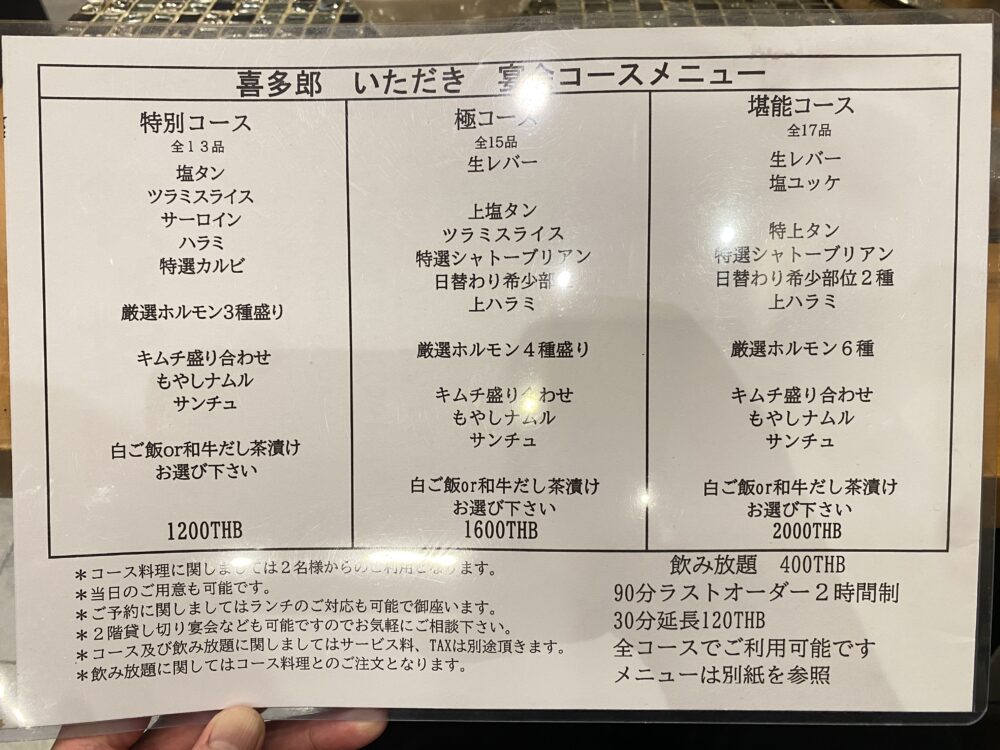 喜多郎 いただき 宴会コースメニュー
特別コース
全13品
塩タン
ツラミスライス
サーロイン
ハラミ
特選カルビ
厳選ホルモン3種盛り
キムチ盛り合わせ
もやしナムル
サンチュ
白ご飯or和牛だし茶漬け
お選び下さい
1200THB
極コース
全15品
生レバー
上塩タン
ツラミスライス
特選シャトーブリアン
日替わり希少部
上ハラミ
厳選ホルモン4種盛り
キムチ盛り合わせ
もやしナムル
サンチュ
白ご飯or和牛だし茶漬け
お選び下さい
1600THB
堪能コース
全17品
生レバー
塩ユッケ
特上タン
特選シャトーブリアン
日替わり希少部位2種
上ハラミ
厳選ホルモン6種
キムチ盛り合わせ
もやしナムル
サンチュ
白ご飯or和牛だし茶漬け
お選び下さい
2000THB
*コース料理に関しましては2名様からのご利用となります。
*当日のご用意も可能です。
*ご予約に関しましてはランチのご対応も可能で御座います。
*2階貸し切り宴会なども可能ですのでお気軽にご相談下さい。
*コース及び飲み放題に関しましてはサービス料、TAXは別途頂きます。
*飲み放題に関してはコース料理とのご注文となります。
飲み放題 400THB
90分ラストオーダー2時間制
30分延長120THB
全コースでご利用可能です
メニューは別紙を参照